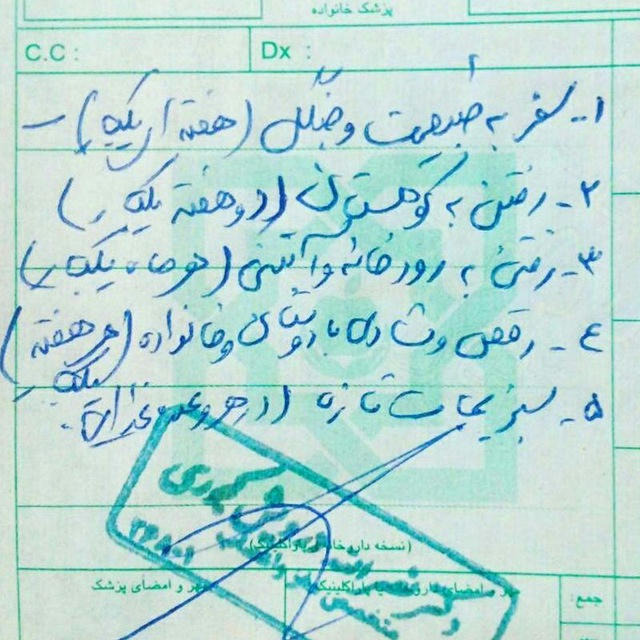 پزشک خانواده
C.C :
Dx :
۱- سفر به طبیعت و جنگل (هفته‌ای یکبار)
۲- رفتن به کوهستان (دو هفته یکبار)
۳- رفتن به رودخانه و آبتنی (هر ماه یکبار)
٤- رقص و شادی با دوستان و خانواده (هر هفته یکبار)
۵- سبزیجات تازه (در هر وعده غذایی).
(نسخه دارو
مهر و امضای پزشک
جمع: